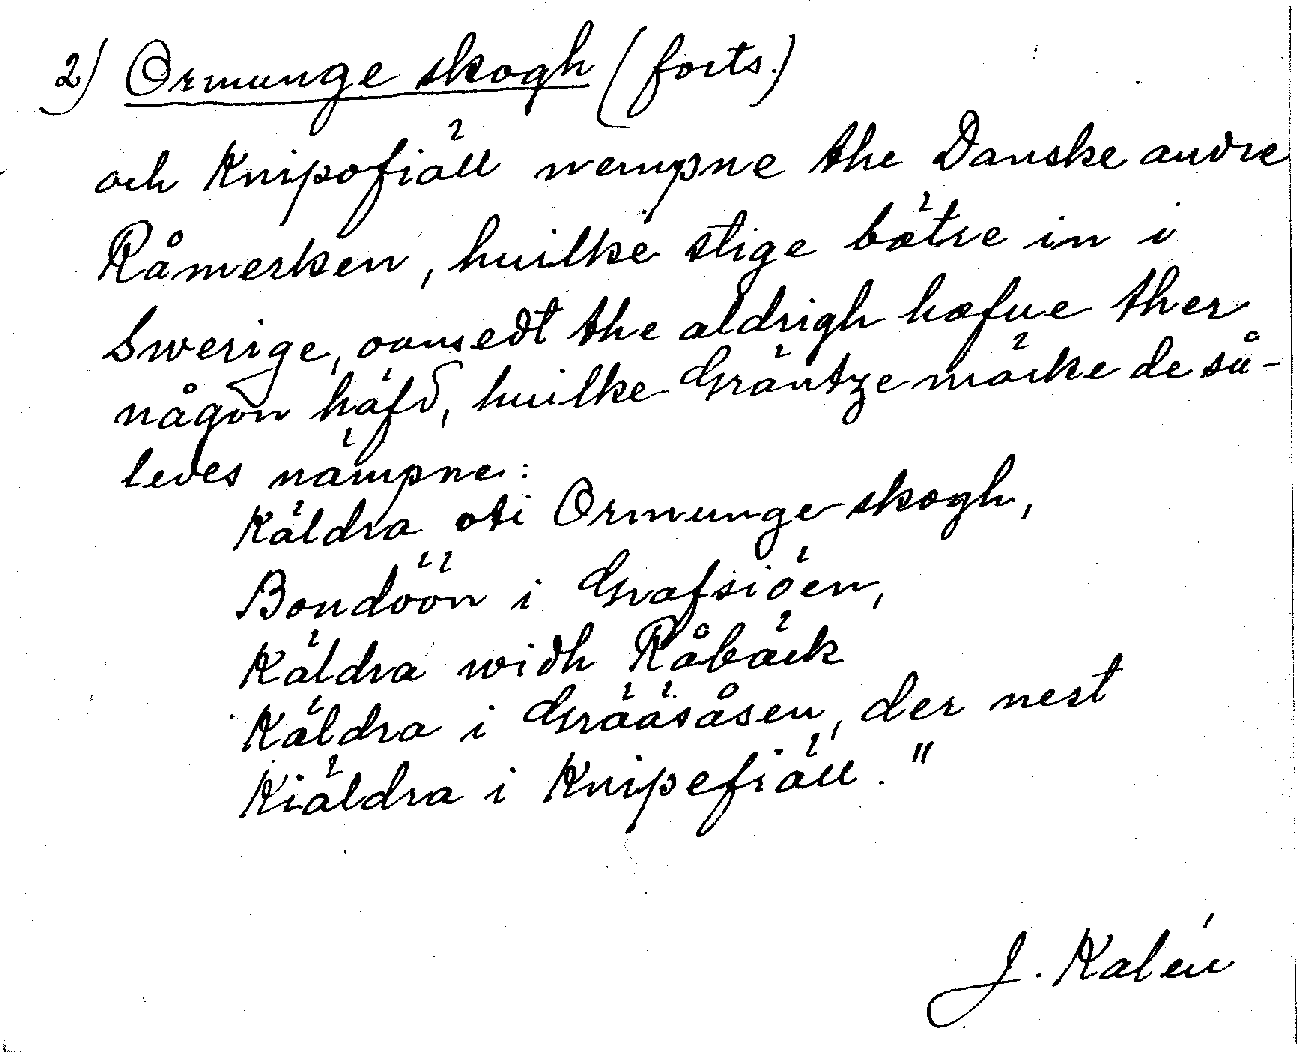 2) Ormunge skogh (forts.)
och Knipofiäll nempne the Danske andre
Råmerken, huilke stige bätre in i
Swerige, oansedt the aldrigh hafue ther
någon häfd, huilke Gräntze märke de så-
ledes nämpne:
Käldra oti Ormunge skogh,
Bondöön i Grafsiöen,
Käldra widh Råbäck
Käldra i Grääsåsen, der nest
Kiäldra i Knipefiäll."
J. Kalén